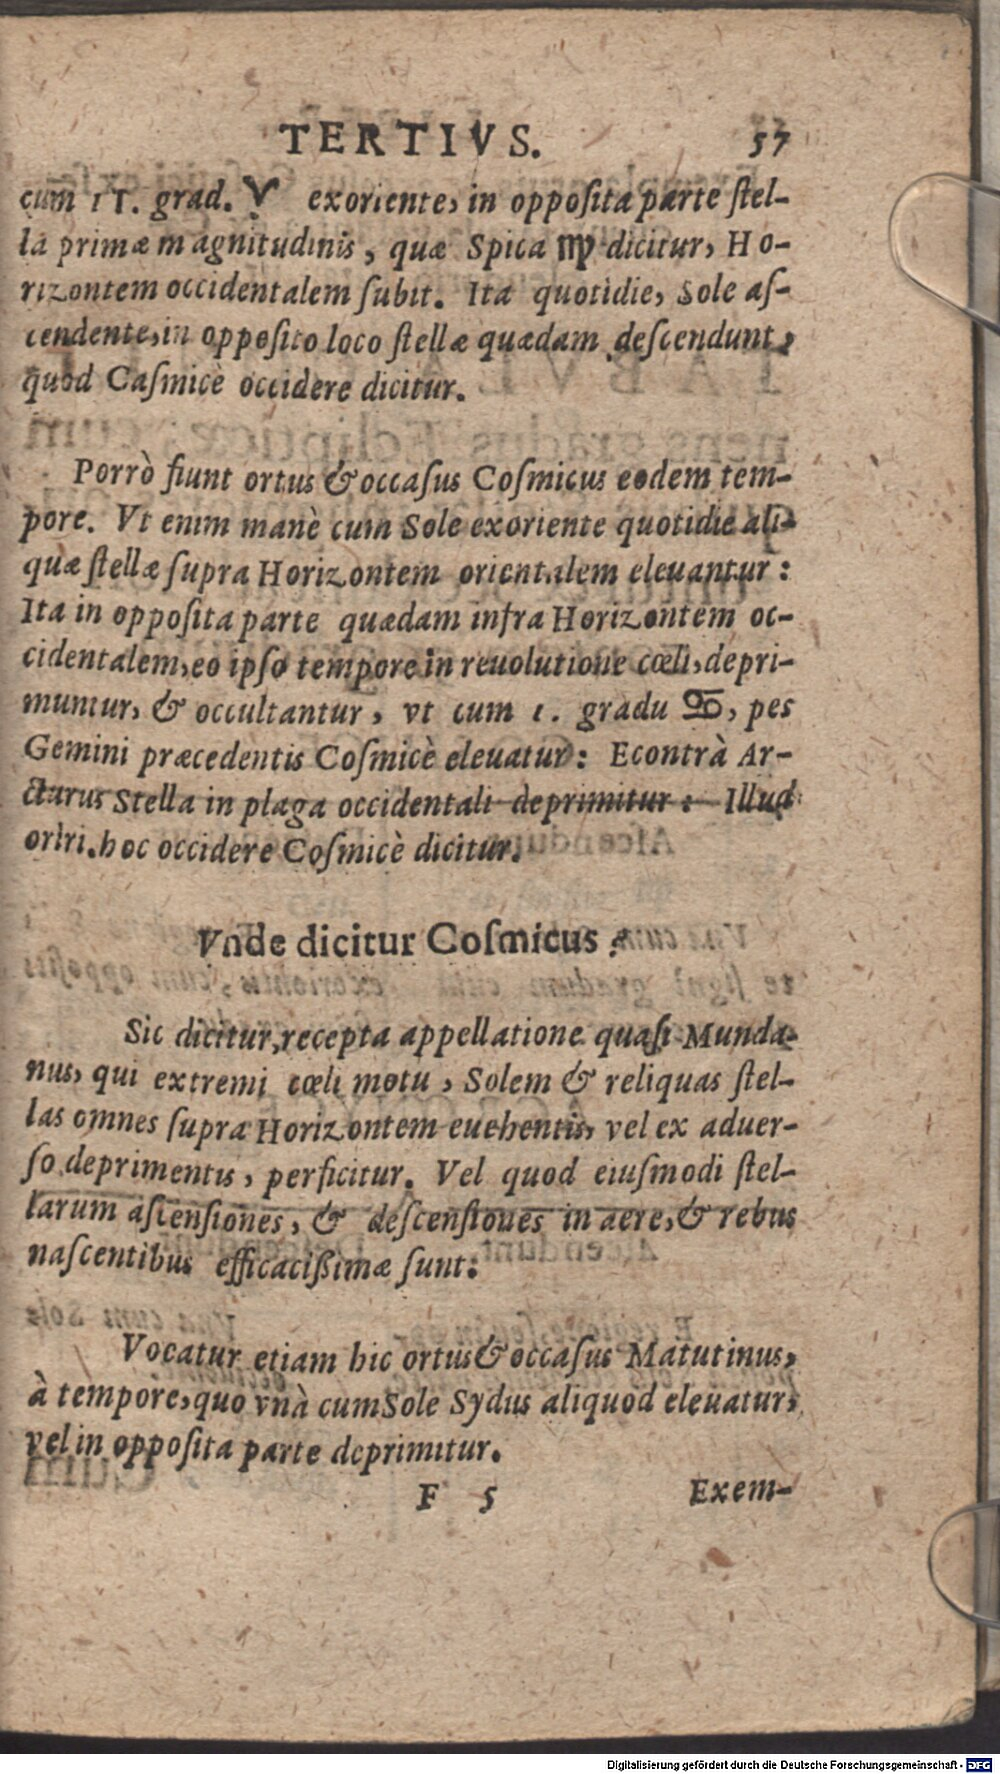 TERTIVS. 57
cum 11. grad. ♈ exoriente, in oppoſita parte ſtel-
la primæ magnitudinis, quæ Spica ♍ dicitur, Ho-
rizontem occidentalem ſubit. Ita quotidie, Sole aſ-
cendente, in oppoſito loco ſtellæ quædam deſcendunt,
quod Caſmicè occidere dicitur.
Porrò fiunt ortus & occaſus Coſmicus eodem tem-
pore. Vt enim manè cum Sole exoriente quotidie ali-
quæ ſtellæ ſupra Horizontem orientalem eleuantur:
Ita in oppoſita parte quædam infra Horizontem oc-
cidentalem, eo ipſo tempore in reuolutione cœli, depri-
muntur, & occultantur, vt cum 1. gradu ♋, pes
Gemini præcedentis Coſmicè eleuatur: Econtrà Ar-
cturus Stella in plaga occidentali deprimitur: Illud
oriri. hoc occidere Coſmicè dicitur.
Vnde dicitur Coſmicus?
Sic dicitur, recepta appellatione quaſi Munda-
nus, qui extremi cœli motu, Solem & reliquas ſtel-
las omnes ſupra Horizontem euehentis, vel ex aduer-
ſo deprimentis, perficitur. Vel quod eiuſmodi ſtel-
larum aſcenſiones, & deſcenſioues in aere, & rebus
naſcentibus efficacißimæ ſunt.
Vocatur etiam hic ortus & occaſus Matutinus,
à tempore, quo vnà cum Sole Sydus aliquod eleuatur,
vel in oppoſita parte deprimitur.
F 5 Exem-
Digitalisierung gefördert durch die Deutsche Forschungsgemeinschaft - DFG